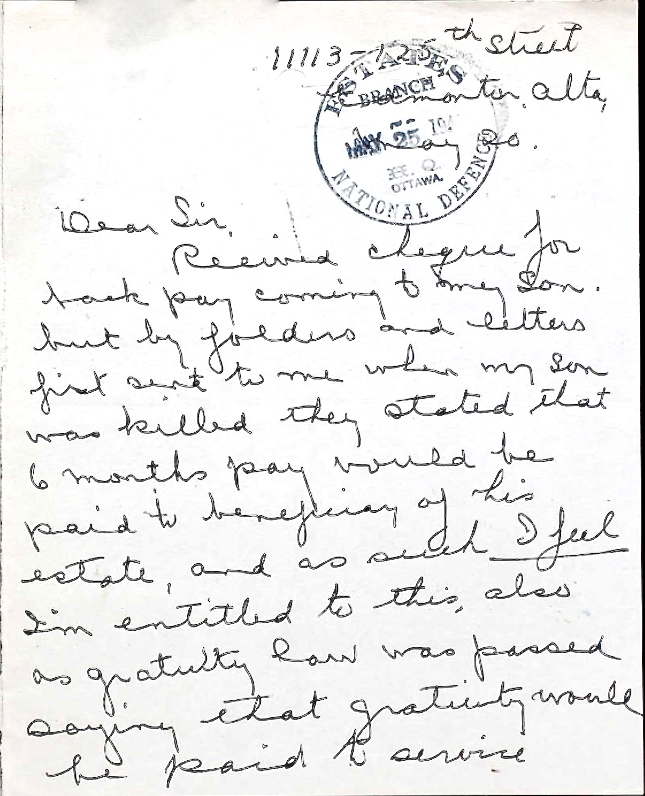 11113-125th Street
Edmonton, Alta,
May 20.
ESTATES
BRANCH
MAY 25 194
H. Q.
OTTAWA.
NATIONAL DEFENCE
Dear Sir,
Recived cheque for
back pay coming to my Son.
but by folders and letters
first sent to me when my son
was killed they stated that
6 months pay would be
paid to beneficiary of his
estate, and as such I feel
I'm entitled to this, also
as gratuity law was passed
saying that gratiuty would
be paid to service